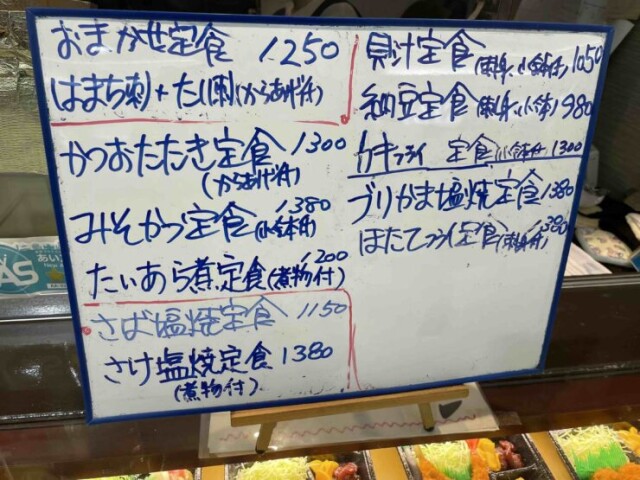 おまかせ定食 1250
はまち刺+たい刺(からあげ付)
かつおたたき定食 1300
(からあげ付)
みそかつ定食(小鉢付) 1380
たいあら煮定食(煮物付) 1200
さば塩焼定食 1150
さけ塩焼定食 1380
(煮物付)
貝汁定食(刺身、小鉢付) 1050
納豆定食(刺身、小鉢) 980
カキフライ 定食(小鉢付) 1300
ブリかま塩焼定食 1380
ほたてフライ定食(刺身付) 1380
AS